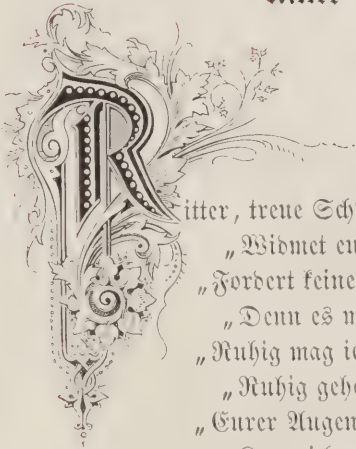 Ritter, treue Sch
„Widmet eu
„Fordert keine
„Denn es m
„Ruhig mag ic
„Ruhig gehe
„Eurer Augen